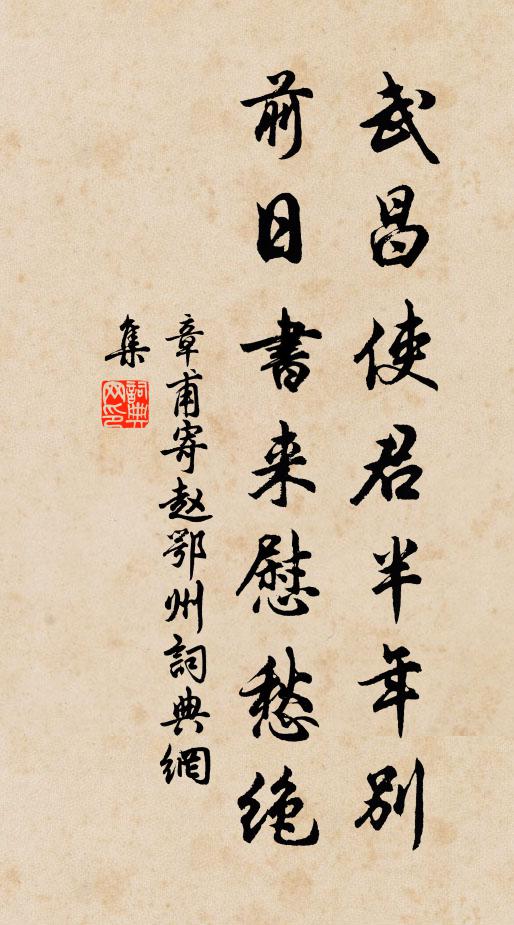 武昌使君半年别
前日書来慰愁绝
章甫寄赵鄂州詞典網
集
詞典网印